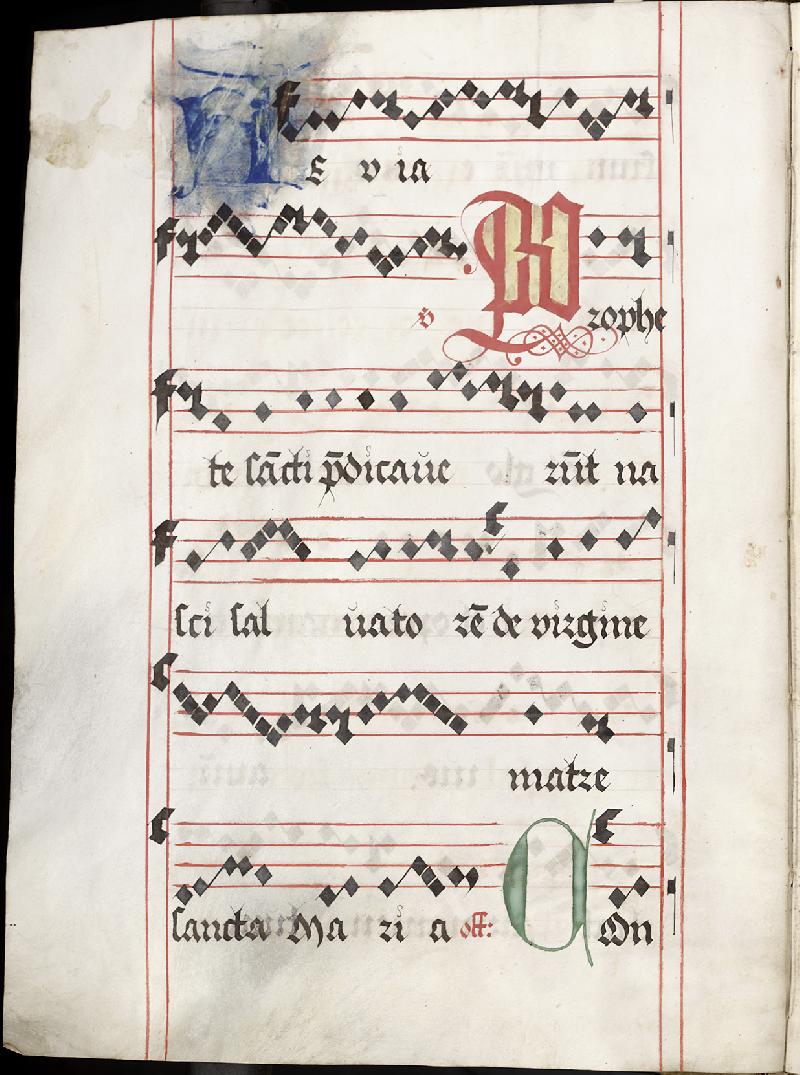 e v ia
v Prophe
te sc̄ti p̄dicaue rūt na
sci sal uato rē de virgine
matre
sancta Ma ri a off: On